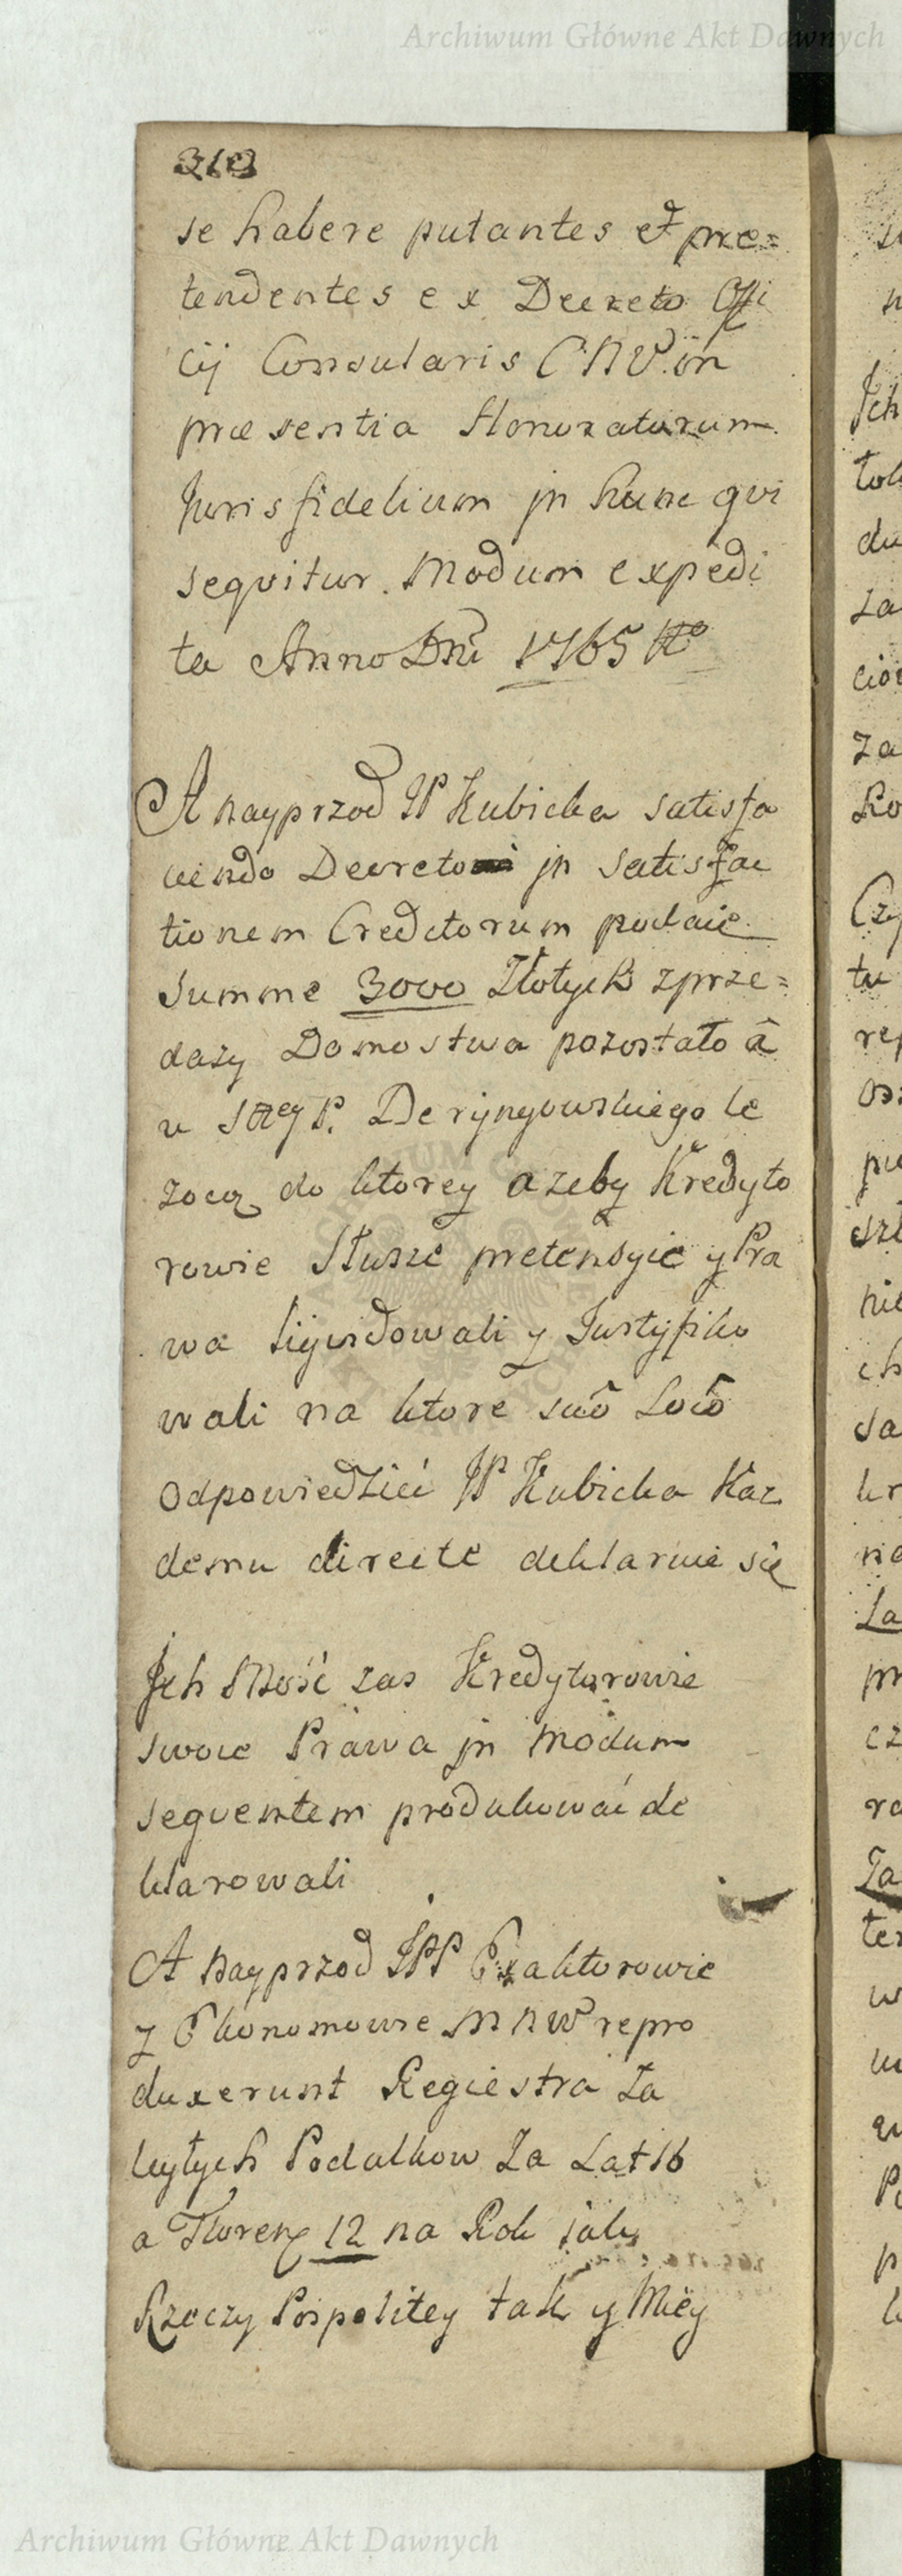 Archiwum Główne Akt Dawnych
se habere putantes et præ=
tendentes ex Decreto Offi
cij Consularis C N V. in
præsentia Honoratorum
Juris fidelium jn hunc qvi
seqvitur. Modum expedi
ta Anno Dni 1765 to
A nayprzod JP Kubicka satisfa
ciendo Decreto jn Satisfac
tionem Creditorum podaie
Summe 3000 Złotych zprze=
dazy Domostwa pozostało â
u JMey P. Deryngowskiego le
zocą do ktorey azeby Kredyto
rowie Słuszc pretensyie y Pra
wa liqvidowali y Justyfiko
wali na ktore suô Locô
odpowiedzieć JP Kubicka Kaz
demu directe deklaruie się
Jch Mość zas Kredytorowie
swoie Prawa jn modum
seqventem produkować de
klarowali
A nayprzod JPP Exaktorowie
y Ekonomowie M N W repro
duxerunt Regiestra Za
ległych Podatkow Za Lat 16
a Floreny 12 na Rok jako
Rzeczy Pospolitey tak y Miey
Archiwum Główne Akt Dawnych